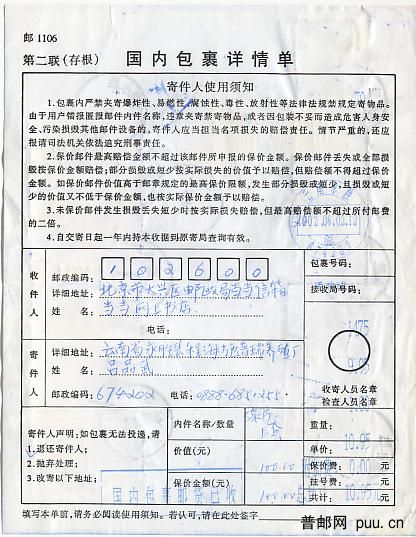 邮1106
第二联(存根) 国内包裹详情单
寄件人使用须知
1.包裹内严禁夹寄爆炸性、易燃性、腐蚀性、毒性、放射性等法律法规禁规定寄物品。
由于用户错报匿报邮件内件名称,违章夹寄禁寄物品,或者因包装不妥而造成危害人身安
全、污染损毁其他邮件设备的,寄件人应当担当名项损失的赔偿责任。情节严重的,还应
报请司法机关依法追究刑事责任。
2.保价邮件最高赔偿金额不超过该邮件所申报的保价金额。保价邮件丢失或全部损
毁按保价金额赔偿;部分损毁或短少按实际损失的价值予以赔偿,但赔偿额不得超过保价
金额。如保价邮件价值高于邮章规定的最高保价限额,发生部分损毁或短少,且损毁或短
少的价值又不低于保价金额,也按实际保价金额予以赔偿。
3.未保价邮件发生损毁丢失短少时按实际损失赔偿,但最高赔偿额不超过所付邮费
的二倍。
4.自交寄日起一年内持本收据到原寄局查询有效。
收件人
邮政编码: 102600
详细地址: 北京市大兴区邮政局当当信箱
姓名: 当当网上书店
电话:
包裹号码:
接收局号码:
寄件人
详细地址: 云南省永胜县程海 普瑞养殖厂
姓名: 吕品武
邮政编码: 674202 电话: 0888-6851255
收寄人员名章
检查人员名章
寄件人声明:如包裹无法投递,请
1.退还寄件人;
2.抛弃处理;
3.改寄以下地址:
内件名称/数量
价值(元)
保价金额(元) 100.00
重量: 1475
单价: 10.95 元
保价费: 0.00 元
挂号费: 元
共计: 10.95 元
国内包裹邮费已收
填写本单前,请务必阅读使用须知。若认可,请在此处签字
普邮网 puu.cn